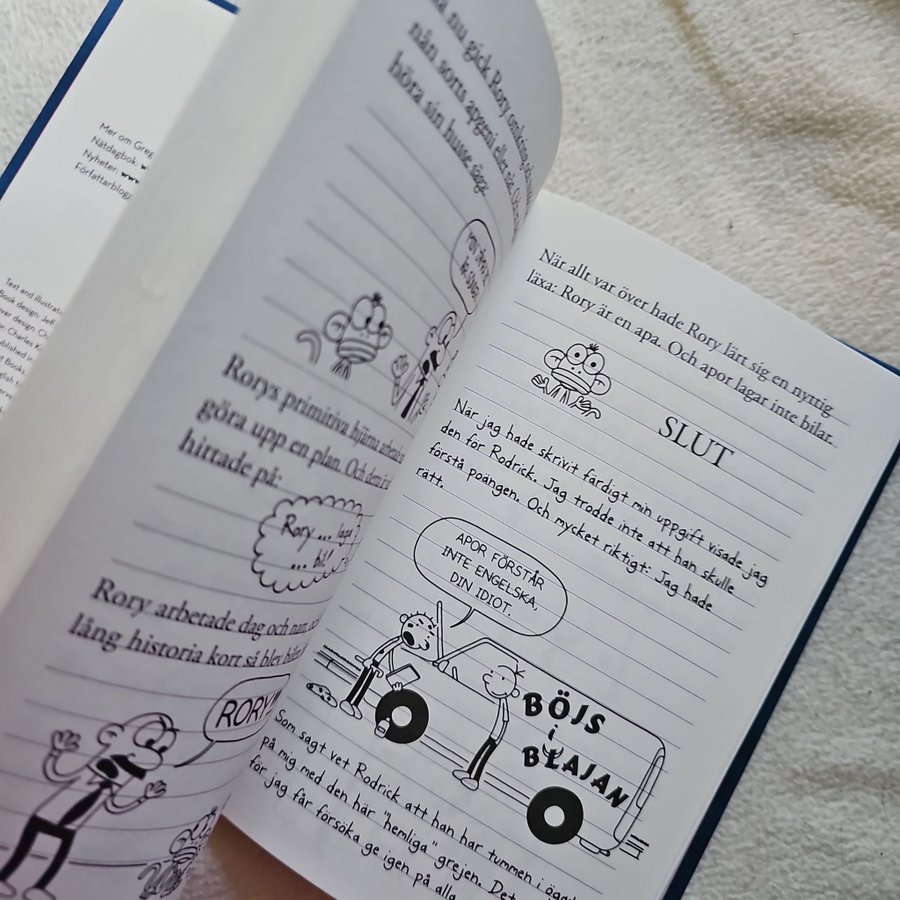 Mer om Greg
Nätdagbok:
Nyheter: www
Författarblogg:
Text and illustra
Book design: Jeff
over design: Ch
r: Charles K
ublished in
t Books,
nglish t
erve
nu gick Rory omkring och
nån sorts apgeni eller nåt.
höra sin husse säga:
Rorys primitiva hjärna arbetade
göra upp en plan. Och den
hittade på:
Rory ... laga
... bil!
Rory arbetade dag och natt, och
lång historia kort så blev bilen
RORY!
När allt var över hade Rory lärt sig en nyttig
läxa: Rory är en apa. Och apor lagar inte bilar.
SLUT
När jag hade skrivit färdigt min uppgift visade jag
den för Rodrick. Jag trodde inte att han skulle
förstå poängen. Och mycket riktigt: Jag hade
rätt.
APOR FÖRSTÅR
INTE ENGELSKA,
DIN IDIOT.
BÖJS
i
BLAJAN
Som sagt vet Rodrick att han har tummen i ögat
på mig med den här "hemliga" grejen. Det
för jag får försöka ge igen på alla